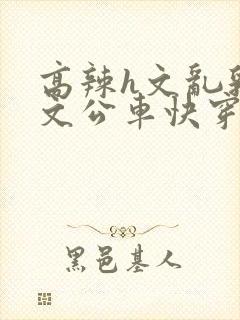 高辣h文亂
文公車快穿
黑邑基人